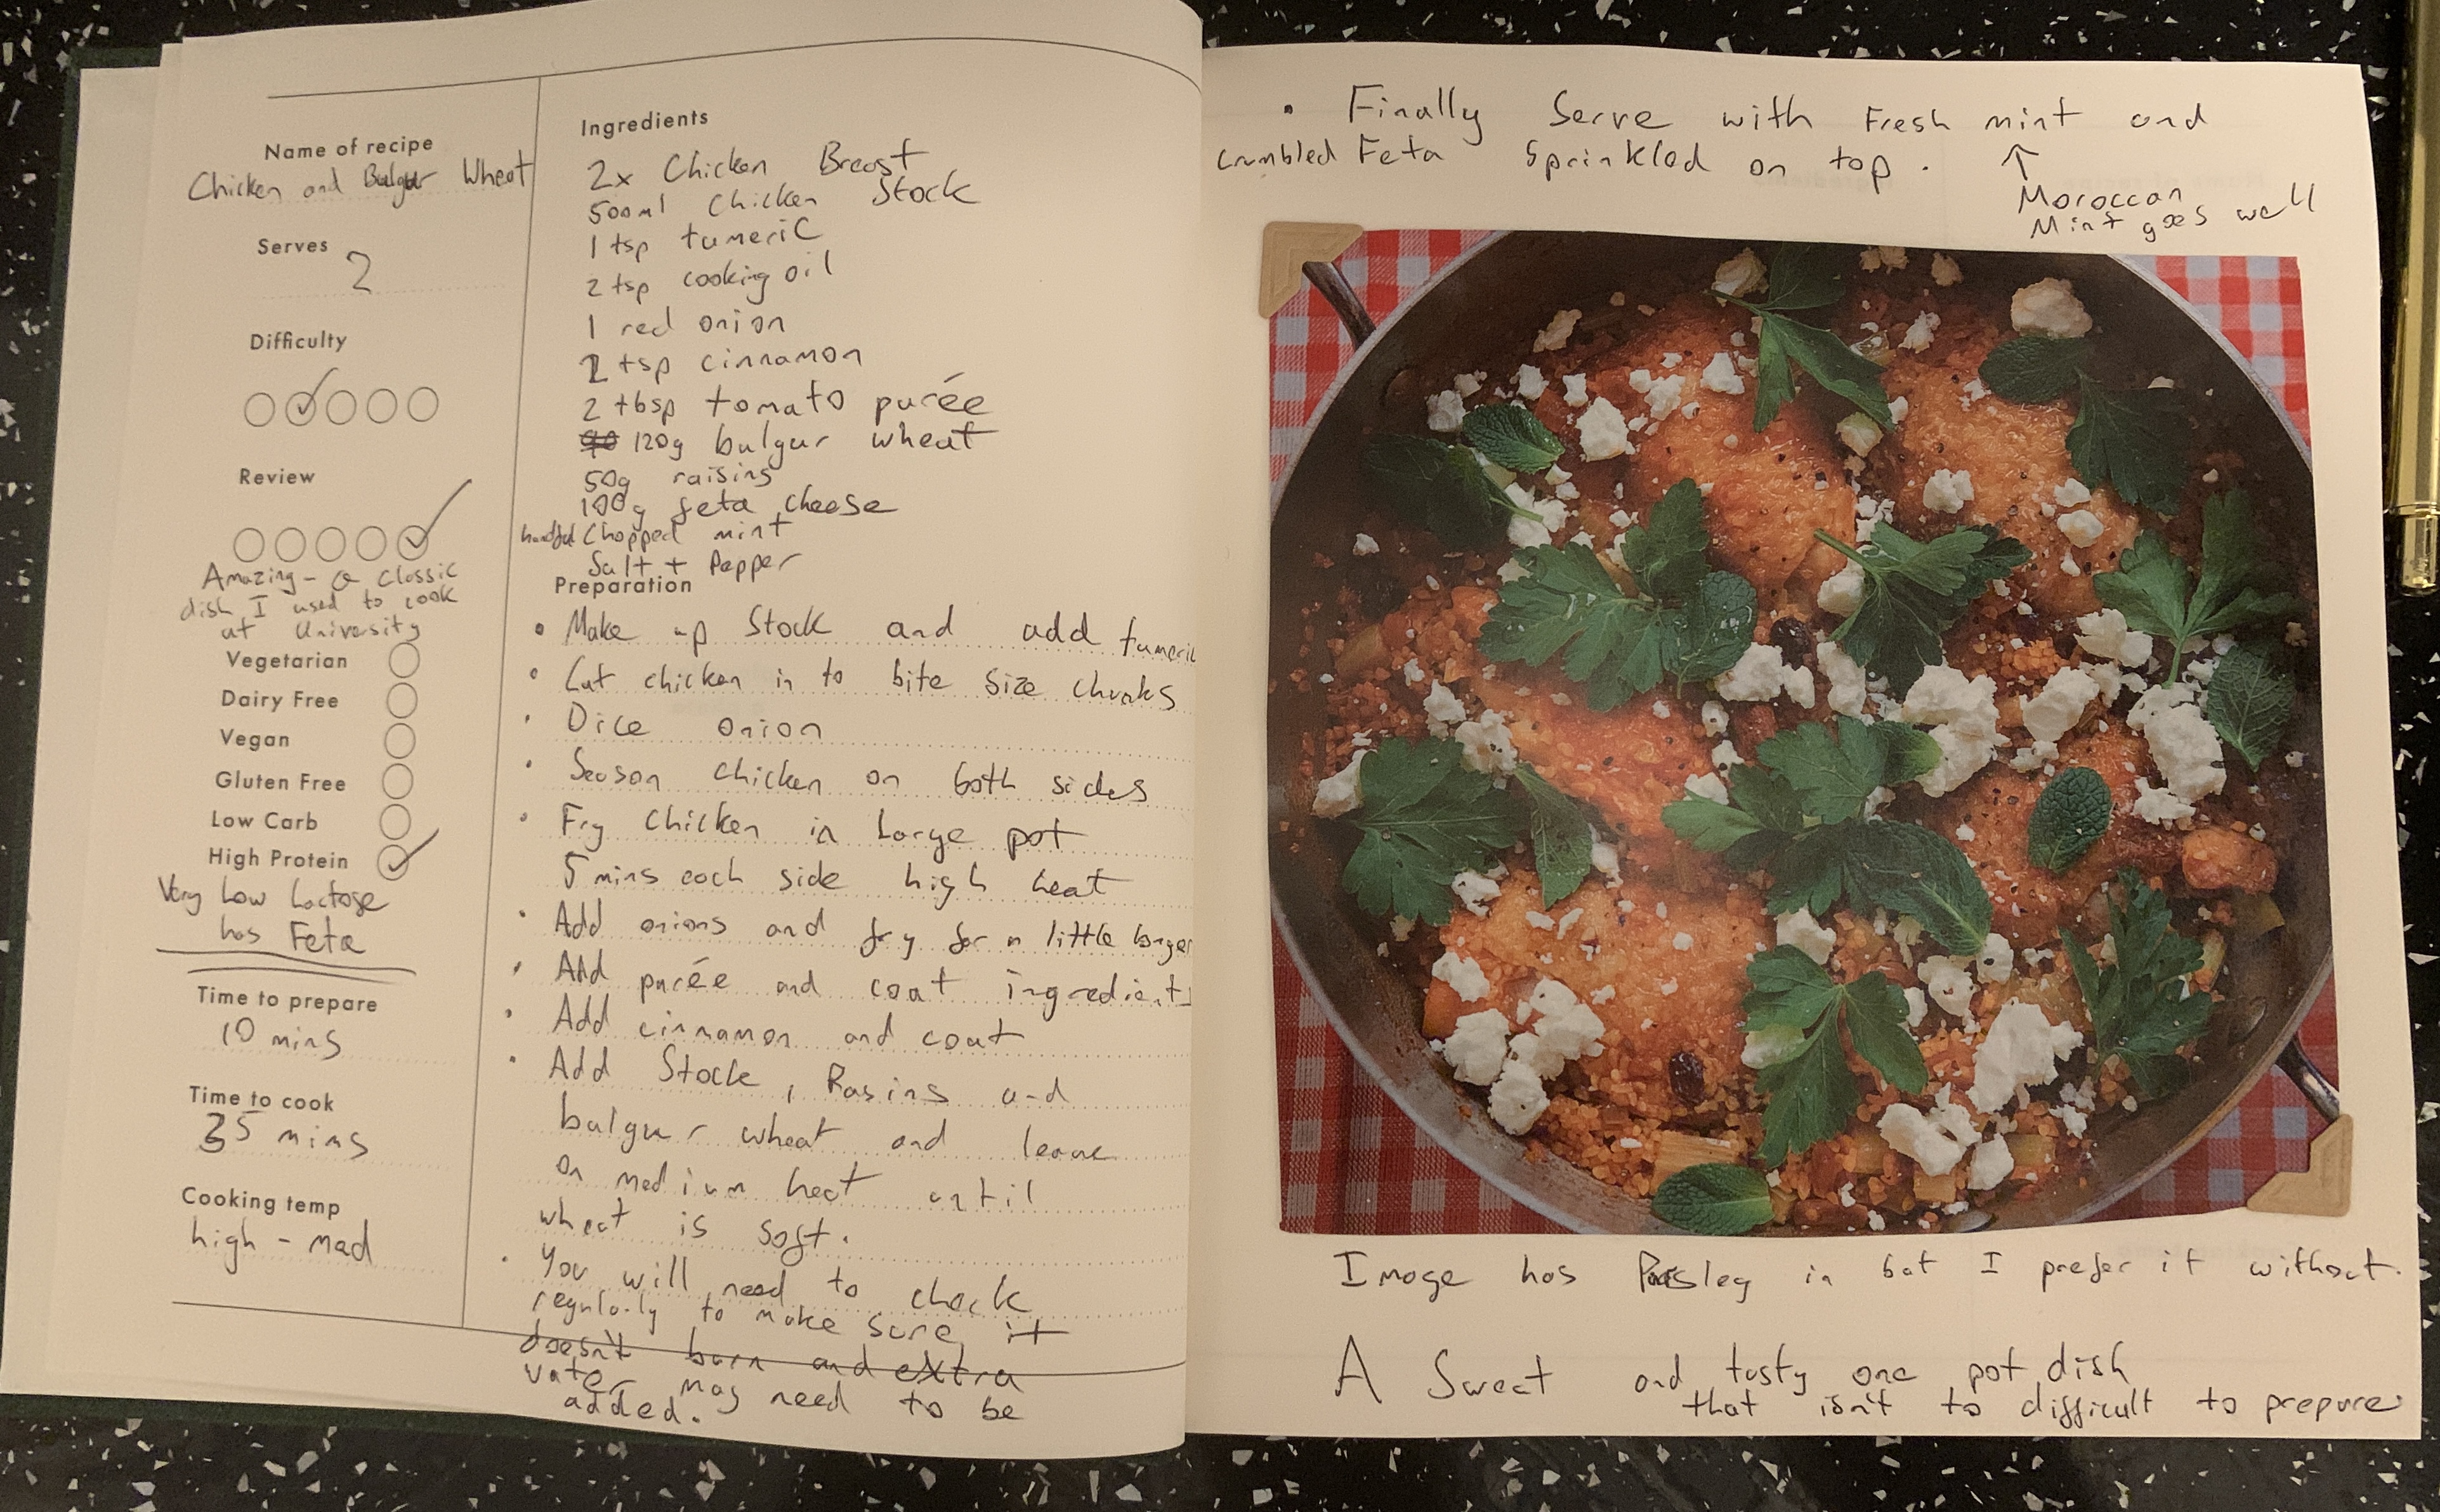 Name of recipe
Chicken and Bulgur Wheat
Serves
2
Difficulty
Review
Amazing - a classic
dish I used to cook
at University
Vegetarian
Dairy Free
Vegan
Gluten Free
Low Carb
High Protein
Very Low Lactose
has Feta
Time to prepare
10 mins
Time to cook
35 mins
Cooking temp
high - med
Ingredients
2x Chicken Breast
500ml Chicken Stock
1 tsp tumeric
2 tsp cooking oil
1 red onion
tsp cinnamon
2 tbsp tomato purée
120g bulgur wheat
50g raisins
100g feta cheese
handful Chopped mint
Salt + Pepper
Preparation
• Make up Stock and add tumeric
• Cut chicken in to bite size chunks
• Dice onion
• Season chicken on both sides
• Fry chicken in Large pot
5 mins each side high heat
• Add onions and fry for a little longer
• Add purée and coat ingredients
• Add cinnamon and coat
• Add Stock, Rasins and
bulgur wheat and leave
on medium heat until
wheat is soft.
• You will need to check
regularly to make sure it
doesn't burn and extra
water may need to be
added.
• Finally Serve with Fresh mint and
crumbled Feta Sprinkled on top.
↑
Moroccan
Mint goes well
Image has Parsley in but I prefer it without.
A Sweet and tasty one pot dish
that isn't to difficult to prepare